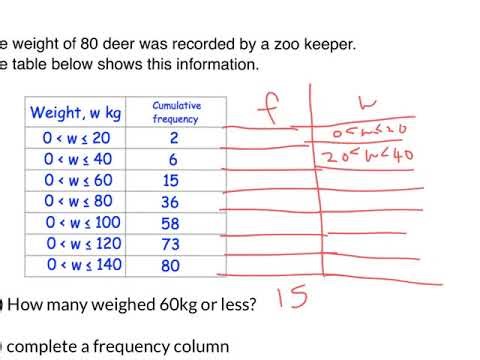 e weight of 80 deer was recorded by a zoo keeper.
e table below shows this information.
Weight, w kg Cumulative frequency f w
0 < w ≤ 20 2 0 < w ≤ 20
0 < w ≤ 40 6 20 < w < 40
0 < w ≤ 60 15
0 < w ≤ 80 36
0 < w ≤ 100 58
0 < w ≤ 120 73
0 < w ≤ 140 80
) How many weighed 60kg or less? 15
) complete a frequency column